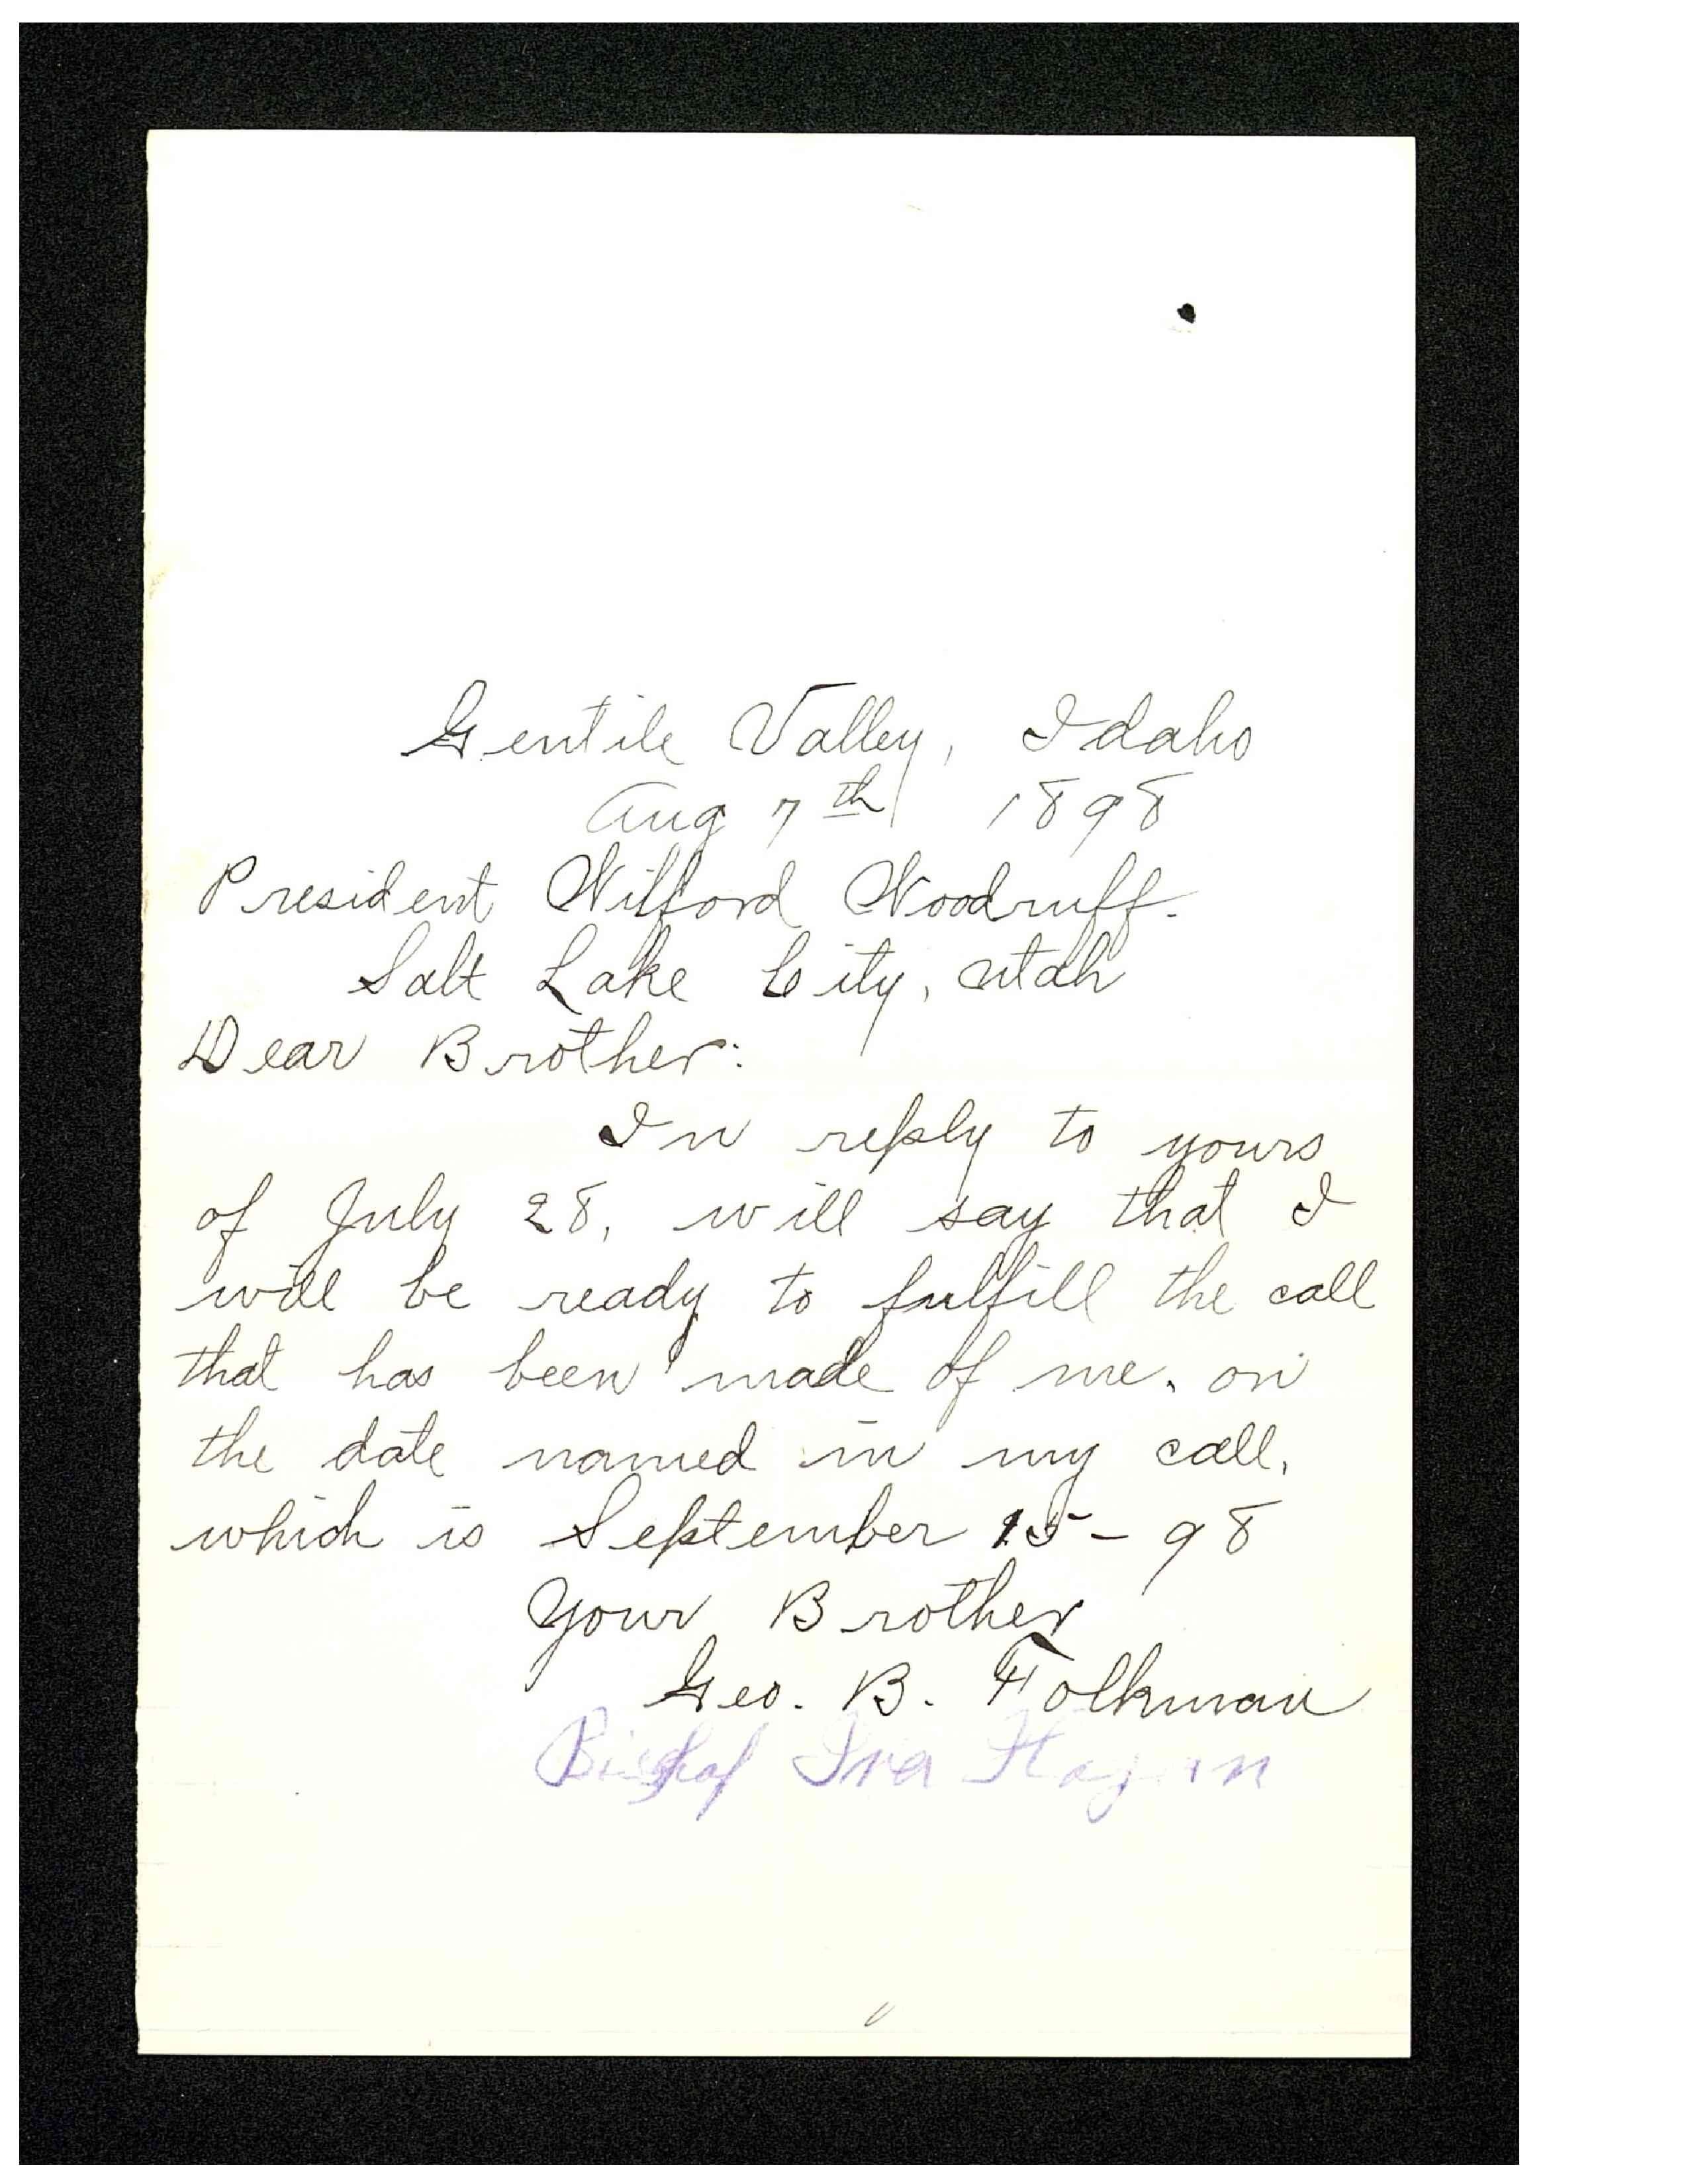 Gentile Valley, Idaho
Aug 7th 1898
President Wilford Woodruff.
Salt Lake City, Utah
Dear Brother:
In reply to yours
of July 28, will say that I
will be ready to fulfill the call
that has been made of me, on
the date named in my call,
which is September 15 - 98
Your Brother
Geo. B. Folkman
Bishop Ira